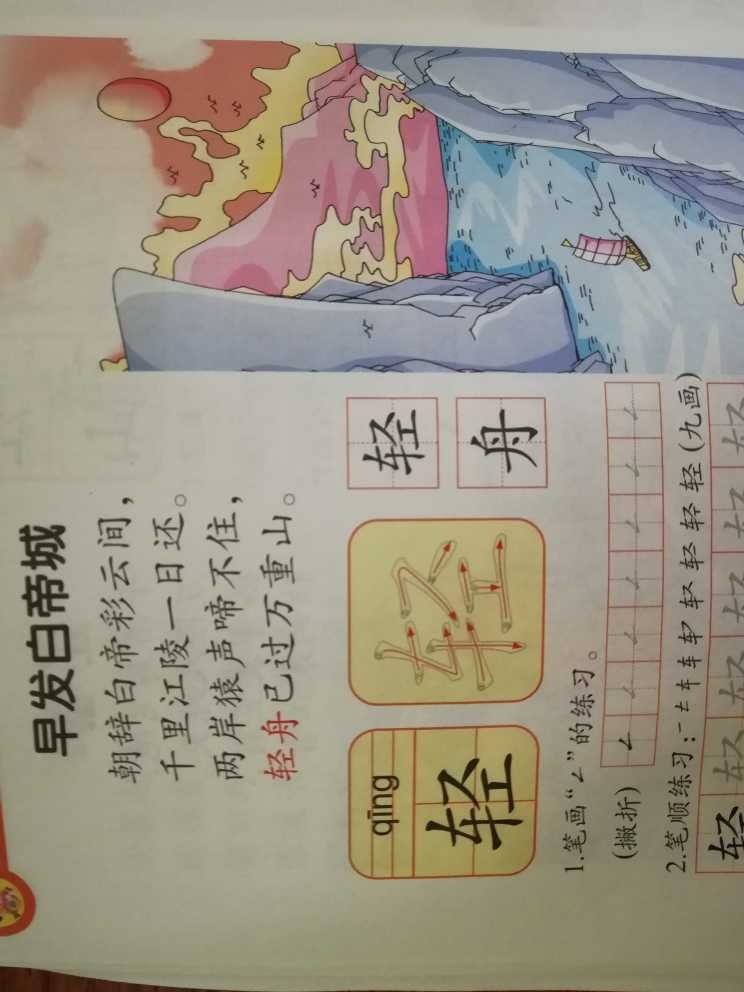 早发白帝城
朝辞白帝彩云间，
千里江陵一日还。
两岸猿声啼不住，
轻舟已过万重山。
qīng
轻
轻
轻
舟
1.笔画“ㄥ”的练习。
(撇折)
2.笔顺练习：
轻 轻 轻 轻(九画)
轻 轻 轻 轻 轻